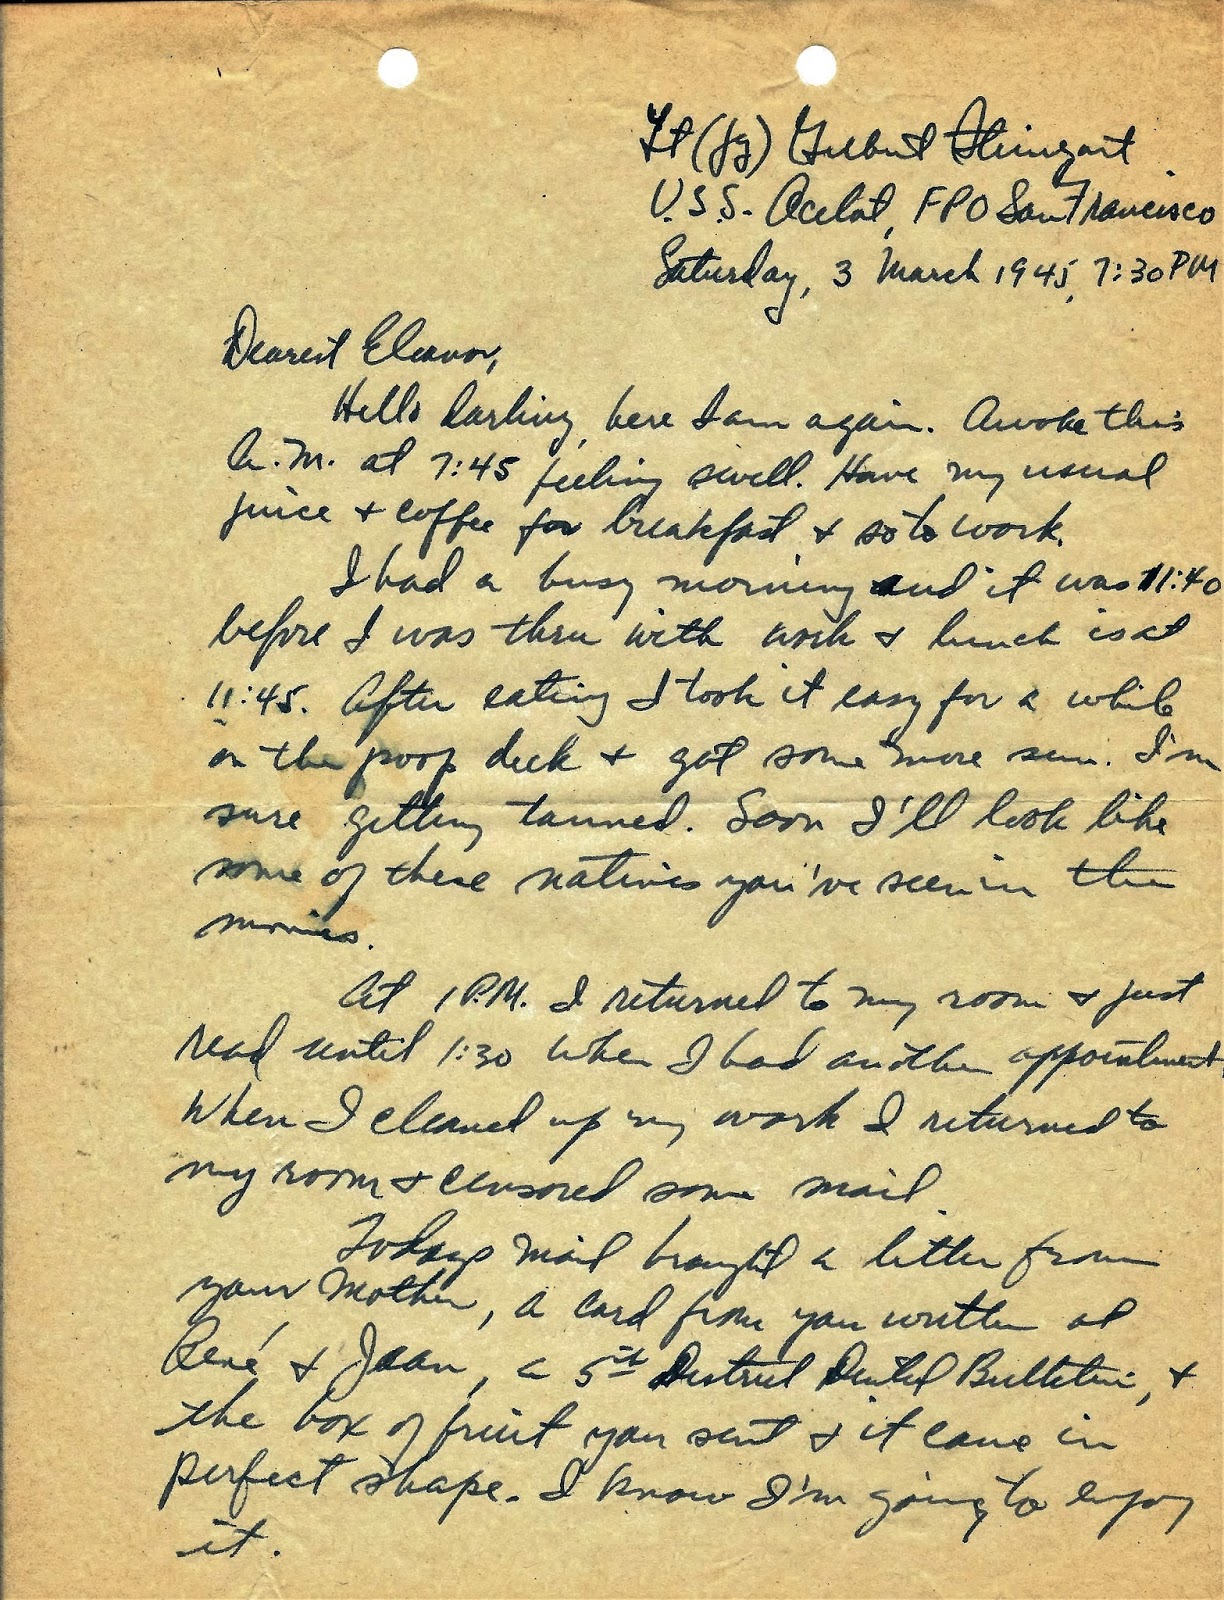 Lt (jg) Gilbert Steingart
U.S.S. Ocelot, FPO San Francisco
Saturday, 3 March 1945, 7:30 PM
Dearest Eleanor,
Hello darling, here I am again. Awoke this
A.M. at 7:45 feeling swell. Have my usual
juice & coffee for breakfast & so to work.
I had a busy morning and it was 11:40
before I was thru with work & lunch is at
11:45. After eating I took it easy for a while
on the poop deck & got some more sun. I'm
sure getting tanned. Soon I'll look like
some of these natives you've seen in the
movies.
At 1 P.M. I returned to my room & just
read until 1:30 when I had another appointment.
When I cleaned up my work I returned to
my room & censored some mail.
Todays mail brought a letter from
your Mother, a card from you written at
René & Jean, a 5th District Dental Bulletin, &
the box of fruit you sent & it came in
perfect shape. I know I'm going to enjoy
it.